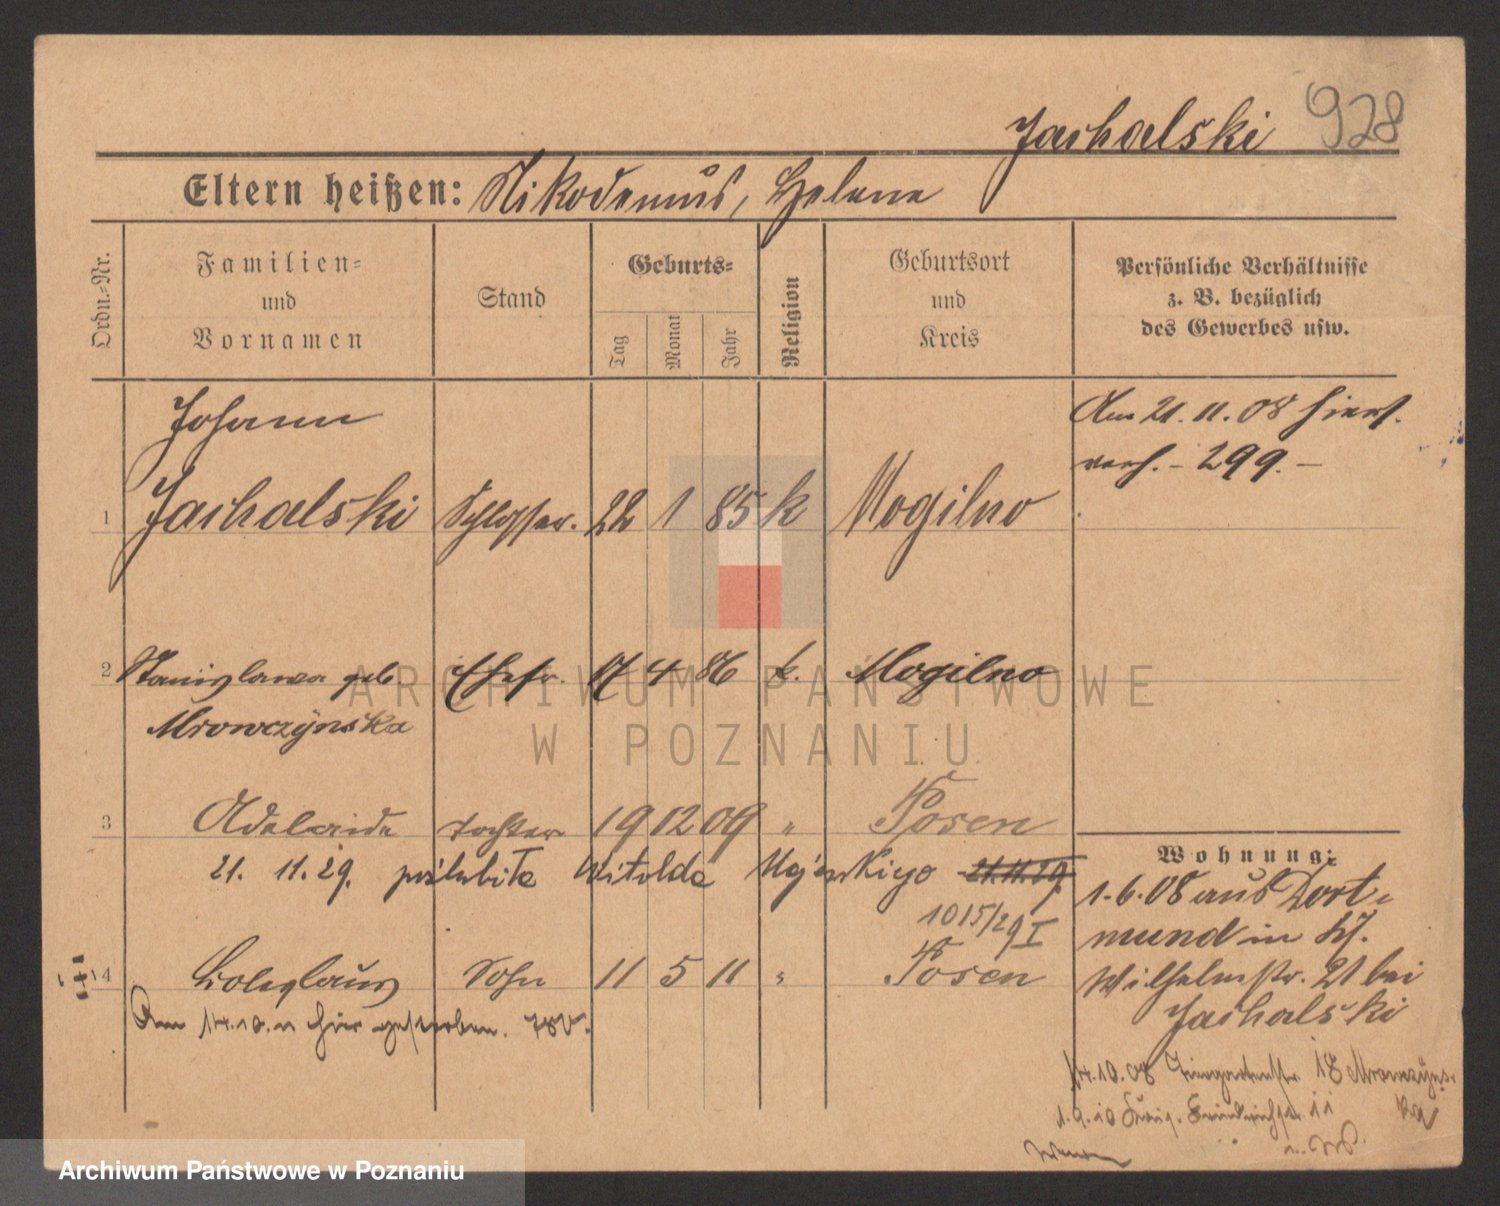 Jachalski 928
Eltern heißen: Nikodemus, Helene
Ordn.-Nr.
Familien-
und
Vornamen
Stand
Geburts-
Tag
Monat
Jahr
Religion
Geburtsort
und
Kreis
Persönliche Verhältnisse
z. B. bezüglich
des Gewerbes usw.
Johann
Am 21.11.08 hiers.
verh. - 299. -
1 Jachalski Schlosser. 22 1 85 k Mogilno
2 Stanislawa geb. Ehefr. 17 4 86 k. Mogilno
Mrowczynska
3 Adelaide Tochter 19 12 09 " Posen
21. 11. 29. poślubiła Witolda 21.11.29.
1015/29 I
4 Boleslaus Sohn 11 5 11 " Posen
Am 14.10.11 hier gestorben.
Wohnung:
1.6.08 aus Dort-
mund in
Wilhelmstr. 21 bei
Jachalski
14.10.08 18 Mrowczyns-
ka
1.9.10 11
ARCHIWUM PAŃSTWOWE
W POZNANIU
Archiwum Państwowe w Poznaniu